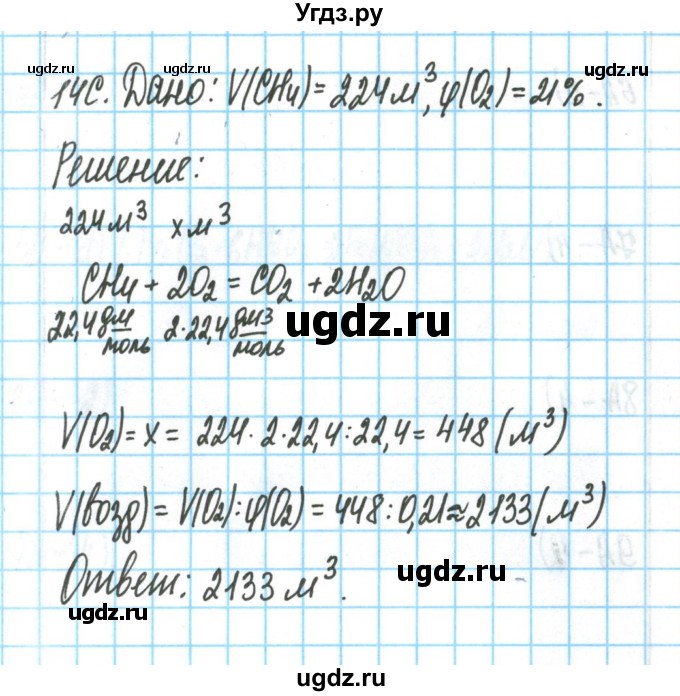 Угдз.ру
ugdz.ru ugdz.ru ugdz.ru
14С. Дано: V(CH4) = 224 м³, φ(O2) = 21%.
Решение:
224 м³ x м³
CH4 + 2O2 = CO2 + 2H2O
ugdz.ru
22,4 дм/моль 2·22,4 дм3/моль
V(O2) = x = 224·2·22,4:22,4 = 448 (м³)
V(возд) = V(O2):φ(O2) = 448:0,21 ≈ 2133 (м³)
Ответ: 2133 м³.
ugdz.ru ugdz.ru
ugdz.ru